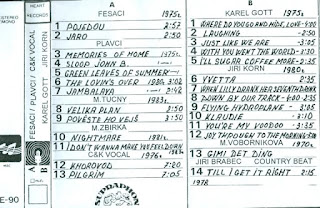 STEREO
MONO
HEART RECORDS
E-90
FESACI / PLAVCI / C&K VOCAL
KAREL GOTT
JIRI KORN
A
B
A
FESACI 1975
1 POJEDOU 2:57
2 JARO 2:50
PLAVCI
3 MEMORIES OF HOME 1975
4 SLOOP JOHN B.
5 GREEN LEAVES OF SUMMER
6 THE LOVIN'S OVER 1980 3:02
7 JAMBALAYA 3:42
M.TUCNY 1983
8 VELIKA PLAN 3:50
9 POVĚSTE HO VEJŠ 3:50
M.ZBIRKA
10 NIGHTMARE 1981
11 I DON'T WANNA MAKE YOU FEEL DOWN
C&K VOCAL 1976
12 KHOROVOD 7:20
13 PILGRIM 7:05
SUPRAPHON
B
KAREL GOTT 1975
1 WHERE DO YOU GO AND HIDE, LOVE
2 LAUGHING 2:50
3 JUST LIKE WE ARE 3:05
4 WITH YOU WENT THE WORLD
5 I'LL SUGAR COFFEE MORE
JIRI KORN 1980
6 YVETTA 2:35
7 WHAT LILLY DRANK HER SEVENTH DAY
8 DOWN BY OUR TRACK
9 FLYING HYDROPLANE 2:05
10 KLAUDIE 3:10
11 YOU'RE MY VOODOO 3:35
12 JOY THROUGH TO THE MORNING
M.VOBORNIKOVA 1970
13 GIMI DET DING
JIRI BRABEC COUNTRY BEAT
14 TILL I GET IT RIGHT 2:15
1978